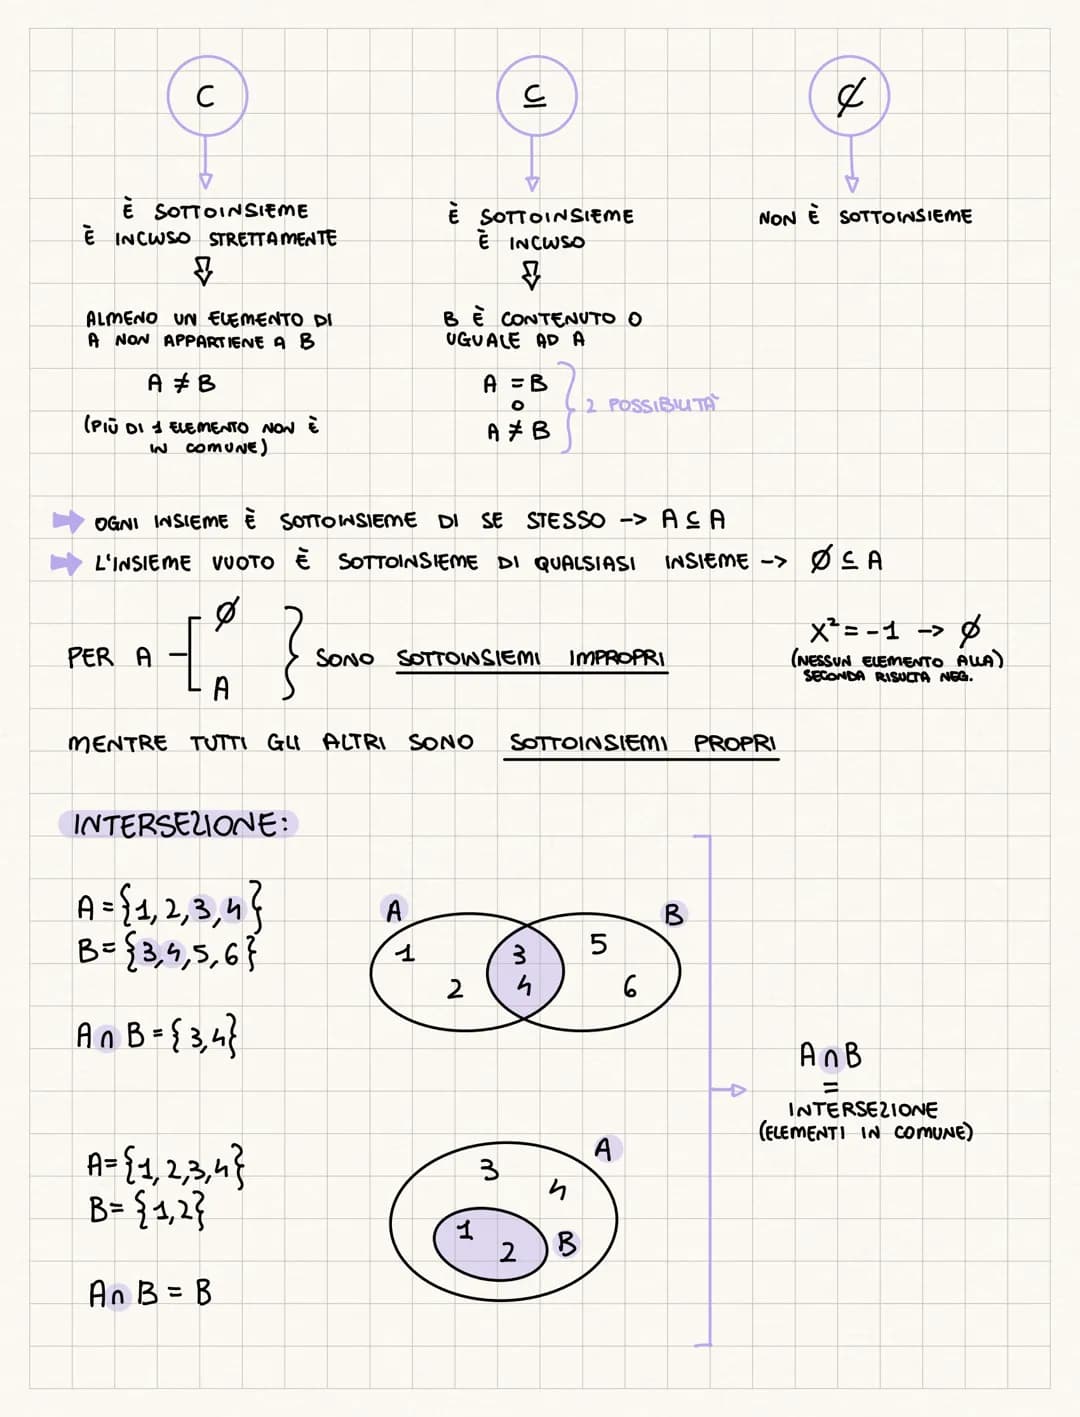 ⊂
È SOTTOINSIEME
È INCLUSO STRETTAMENTE
ALMENO UN ELEMENTO DI
A NON APPARTIENE A B
A ≠ B
(PIÙ DI 1 ELEMENTO NON È
IN COMUNE)
⊆
È SOTTOINSIEME
È INCLUSO
B È CONTENUTO O
UGUALE AD A
A = B
O
A ≠ B
2 POSSIBILITÀ
⊄
NON È SOTTOINSIEME
OGNI INSIEME È SOTTOINSIEME DI SE STESSO -> A ⊆ A
L'INSIEME VUOTO È SOTTOINSIEME DI QUALSIASI INSIEME -> Ø ⊆ A
PER A
Ø
A
SONO SOTTOINSIEMI IMPROPRI
X² = -1 -> Ø
(NESSUN ELEMENTO ALLA)
SECONDA RISULTA NEG.
MENTRE TUTTI GLI ALTRI SONO SOTTOINSIEMI PROPRI
INTERSEZIONE:
A = {1, 2, 3, 4}
B = {3, 4, 5, 6}
A ∩ B = {3, 4}
A
B
1
2
3
4
5
6
A = {1, 2, 3, 4}
B = {1, 2}
A ∩ B = B
A
3
4
1
2
B
A ∩ B
=
INTERSEZIONE
(ELEMENTI IN COMUNE)